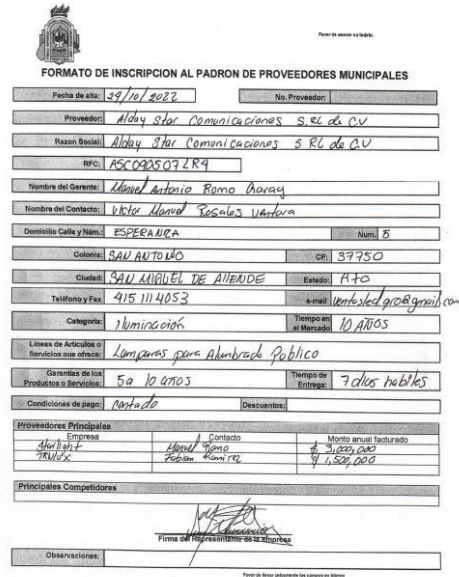 Favor de anexar su tarjeta.
FORMATO DE INSCRIPCION AL PADRON DE PROVEEDORES MUNICIPALES
Fecha de alta: 29/10/2022 No. Proveedor:
Proveedor: Alday Star Comunicaciones S. RL de C.V
Razon Social: Alday Star Comunicaciones S RL de C.V
RFC: ASC090507LR4
Nombre del Gerente: Manuel Antonio Romo
Nombre del Contacto: Victor Manuel Rosales Ventura
Domicilio Calle y Núm.: ESPERANZA Num. 5
Colonia: SAN ANTONIO CP: 37750
Ciudad: SAN MIGUEL DE ALLENDE Estado: GTO
Teléfono y Fax 415 111 4053 e-mail ventasled.gro@gmail.com
Categoría: iluminación Tiempo en el Mercado 10 AÑOS
Lineas de Artículos o Servicios que ofrece: Lamparas para Alumbrado Publico
Garantias de los Productos o Servicios: 5 a 10 años Tiempo de Entrega: 7 dias habiles
Condiciones de pago: Contado Descuentos:
Proveedores Principales
Empresa Contacto Monto anual facturado
Manuel Romo $ 3,000,000
Fabian Ramirez $ 1,500,000
Principales Competidores
Firma del Representante de la Empresa
Observaciones:
Favor de llenar únicamente los campos en blanco